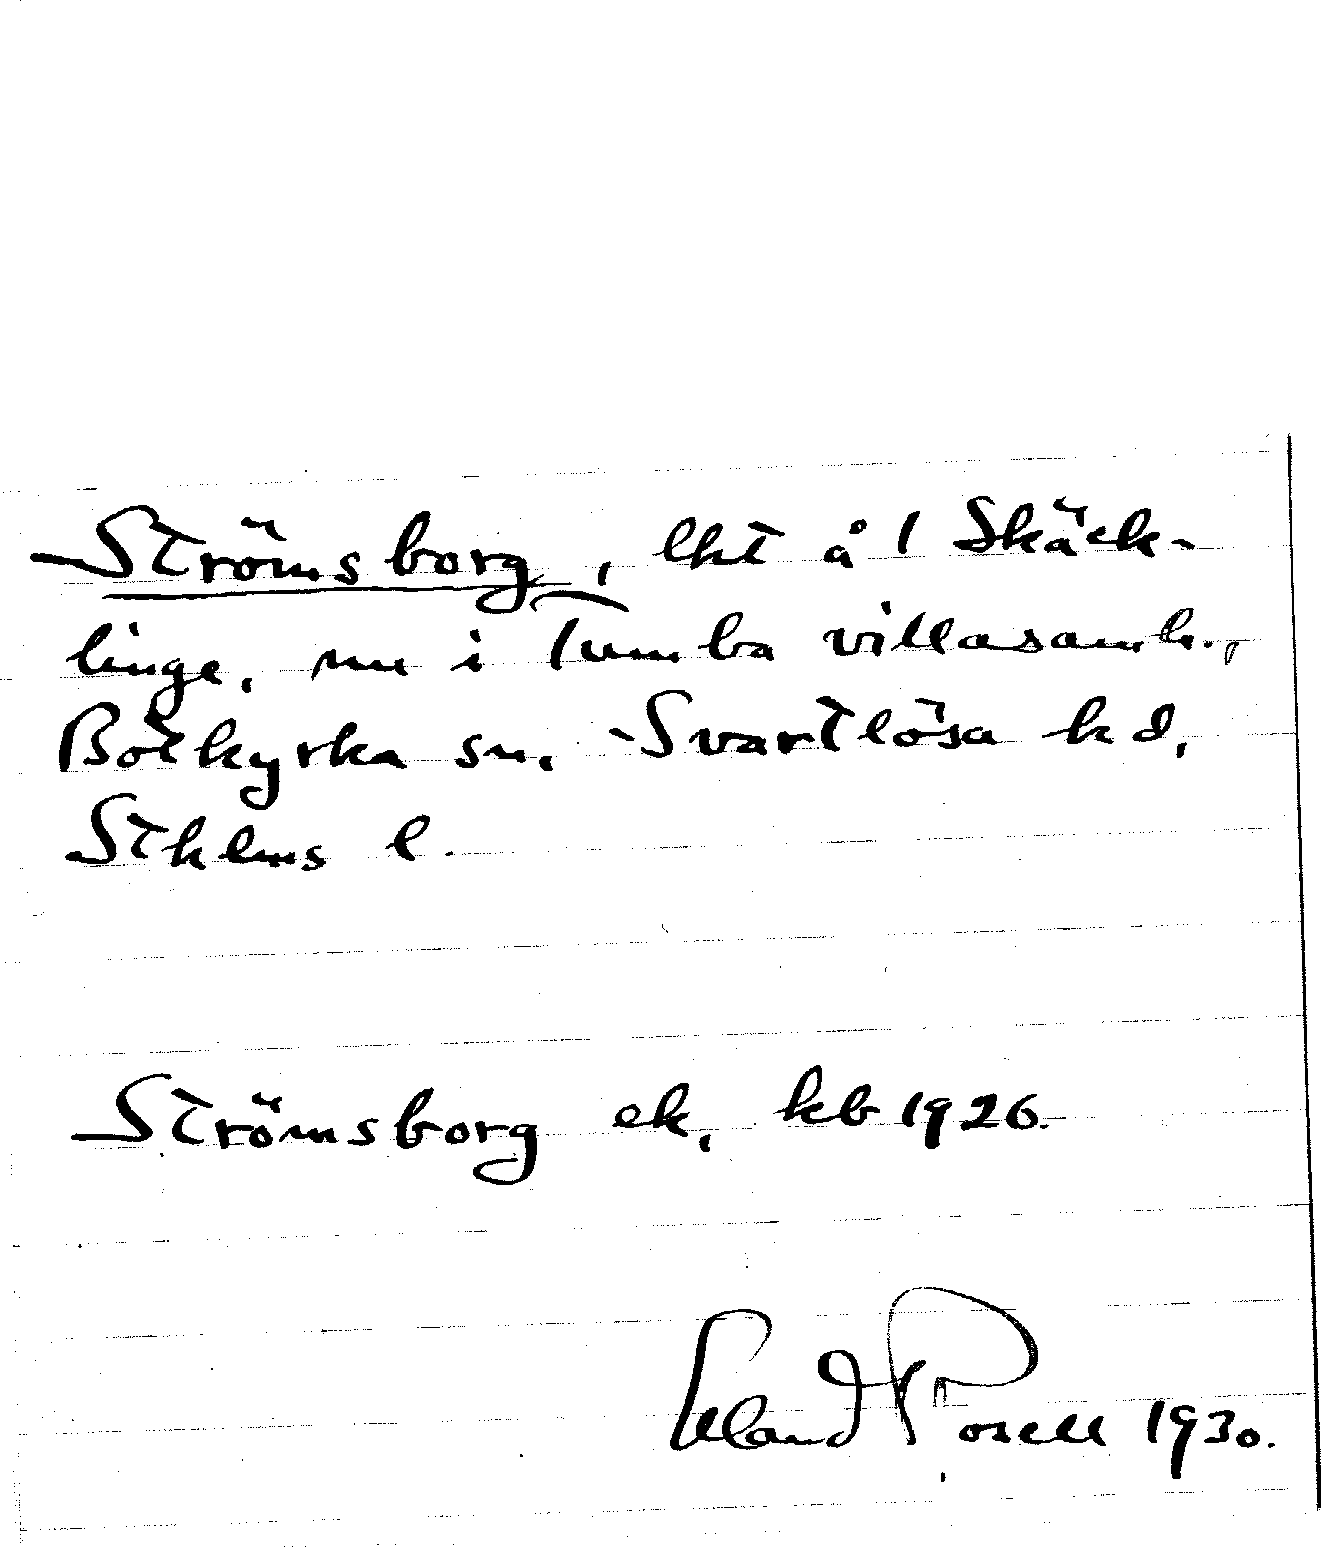 Strömsborg, lht å 1 Skäck-
linge, nu i Tumba villasamh.,
Botkyrka sn. Svartlösa hd,
Sthlms l.
Strömsborg ek, kb 1926.
Rosell 1930.